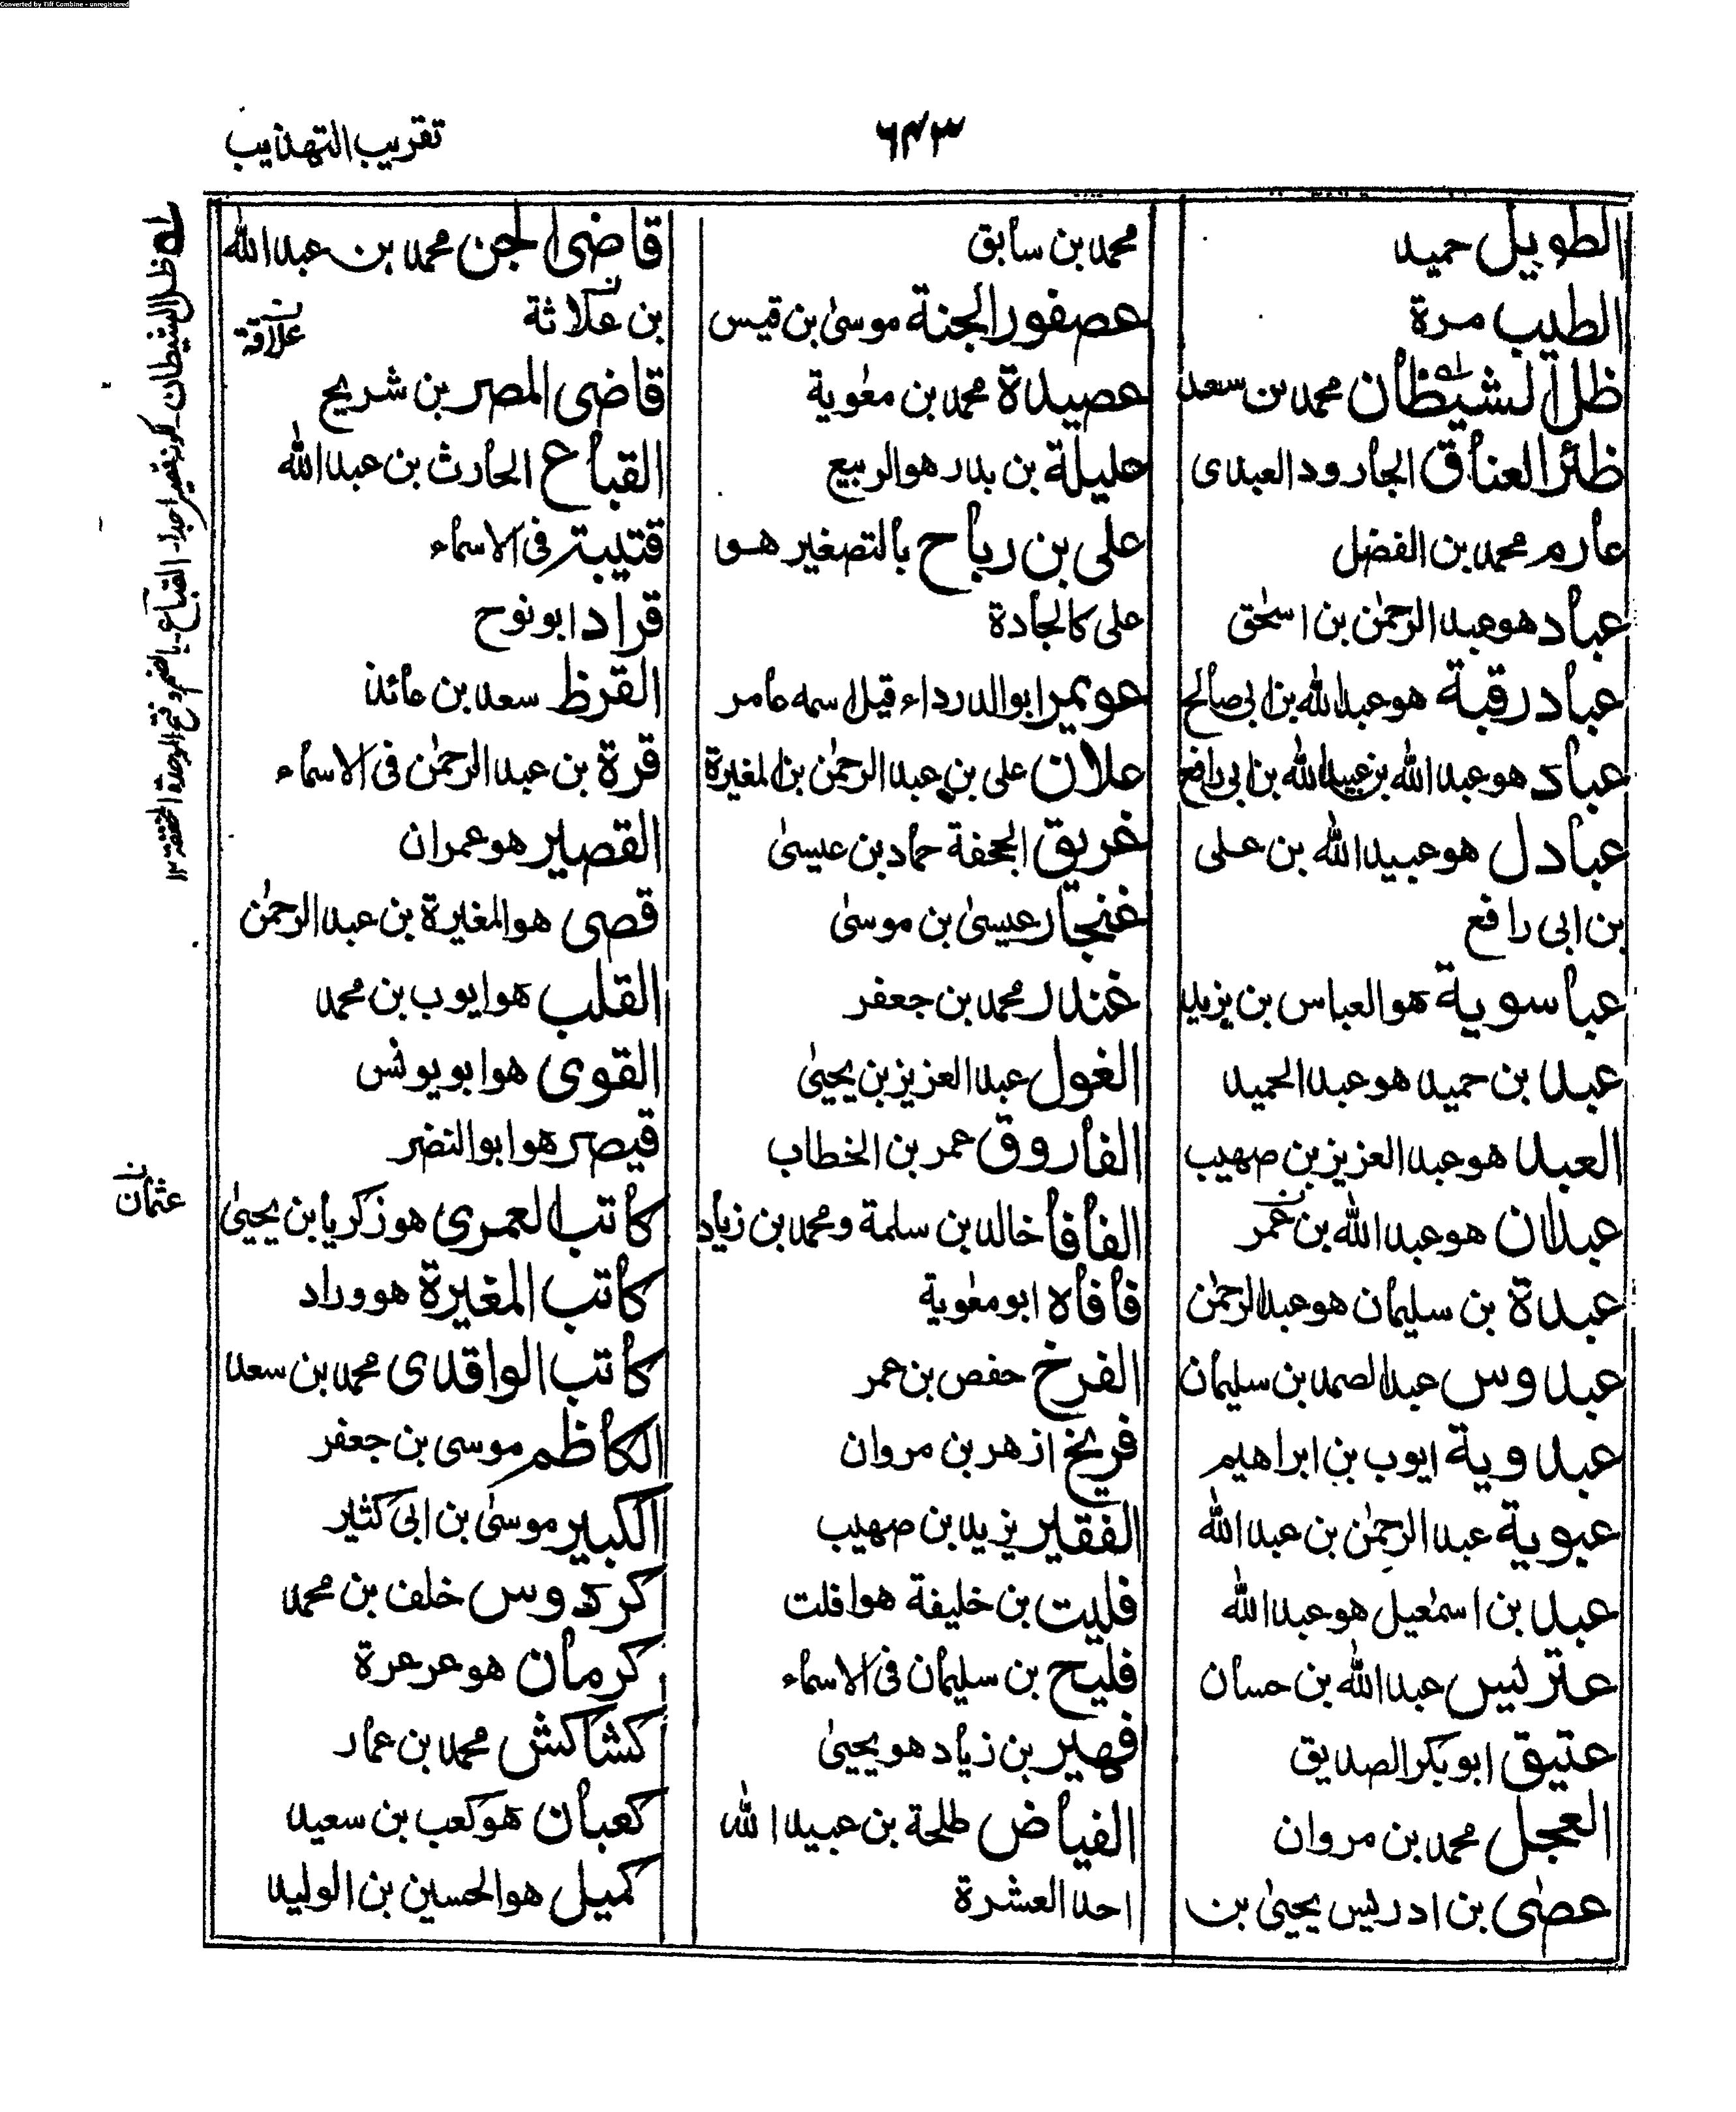 Converted by Tiff Combine - unregistered
۶۴۳
تقریب التهذیب
الطویل حمید
الطیب مرة
ظل الشیطان محمد بن سعد
ظئر العناق الجارود العبدی
عارم محمد بن الفضل
عباد هو عبد الرحمٰن بن اسحٰق
عباد رقبة هو عبد الله بن ابی صالح
عباد هو عبد الله بن عبید الله بن ابی رافع
عبادل هو عبید الله بن علی
بن ابی رافع
عباسویة هو العباس بن یزید
عبد بن حمید هو عبد الحمید
العبد هو عبد العزیز بن صهیب
عبدان هو عبد الله بن عمر
عبدة بن سلیمان هو عبد الرحمٰن
عبدوس عبد الصمد بن سلیمان
عبدویة ایوب بن ابراهیم
عبویة عبد الرحمٰن بن عبد الله
عبد بن اسمٰعیل هو عبد الله
عتریس عبد الله بن حسان
عتیق ابو بکر الصدیق
العجل محمد بن مروان
عصٰی بن ادریس یحیىٰ بن
محمد بن سابق
عصفور الجنة موسیٰ بن قیس
عصیدة محمد بن معٰویة
علیلة بن بدر هو الربیع
علی بن رباح بالتصغیر هو
علی کالجادة
عویمر ابو الدرداء قیل اسمه عامر
علان علی بن عبد الرحمٰن بن المغیرة
غریق الجحفة حماد بن عیسیٰ
غنجار عیسیٰ بن موسیٰ
غندر محمد بن جعفر
الغول عبد العزیز بن یحییٰ
الفاروق عمر بن الخطاب
الفأفأ خالد بن سلمة ومحمد بن زیاد
فأفاه ابو معٰویة
الفرخ حفص بن عمر
فریخ ازهر بن مروان
الفقیر یزید بن صهیب
فلیت بن خلیفة هو افلت
فلیح بن سلیمان فی الاسماء
فهیر بن زیاد هو یحییٰ
الفیاض طلحة بن عبید الله
احد العشرة
قاضی الجن محمد بن عبد الله
بن علاثة
علاقة
قاضی المصر بن شریح
القباع الحارث بن عبد الله
قتیبة فی الاسماء
قراد ابو نوح
القرظ سعد بن عائذ
قرة بن عبد الرحمٰن فی الاسماء
القصیر هو عمران
قصی هو المغیرة بن عبد الرحمٰن
القلب هو ایوب بن محمد
القوی هو ابو یونس
قیصر هو ابو النضر
کاتب العمری هو زکریا بن یحییٰ
کاتب المغیرة هو وراد
کاتب الواقدی محمد بن سعد
الکاظم موسی بن جعفر
الکبیر موسیٰ بن ابی کثیر
کردوس خلف بن محمد
کرمان هو عرعرة
کشاکش محمد بن عمار
کعبان هو کعب بن سعید
کمیل هو الحسین بن الولید
له ظل الشیطان - لکونه قصیرا جدا - القباع - بالضم وفتح الموحدة المخففة ۱۲
عثمان